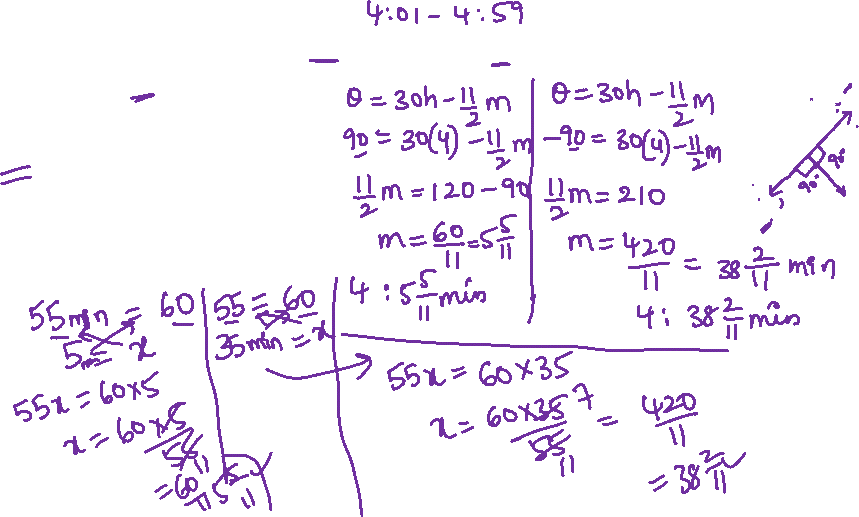 4:01 - 4:59
θ = 30h - 11/2 m
90 = 30(4) - 11/2 m
11/2 m = 120 - 90
m = 60/11 = 5 5/11
4 : 5 5/11 min
θ = 30h - 11/2 m
-90 = 30(4) - 11/2 m
11/2 m = 210
m = 420/11 = 38 2/11 min
4 : 38 2/11 min
90°
90°
55 min = 60
5 min = x
55x = 60×5
x = 60×5/55 11
= 60/11 5 5/11
55 = 60
35 min = x
55x = 60×35
x = 60×35 7/55 11 = 420/11
= 38 2/11